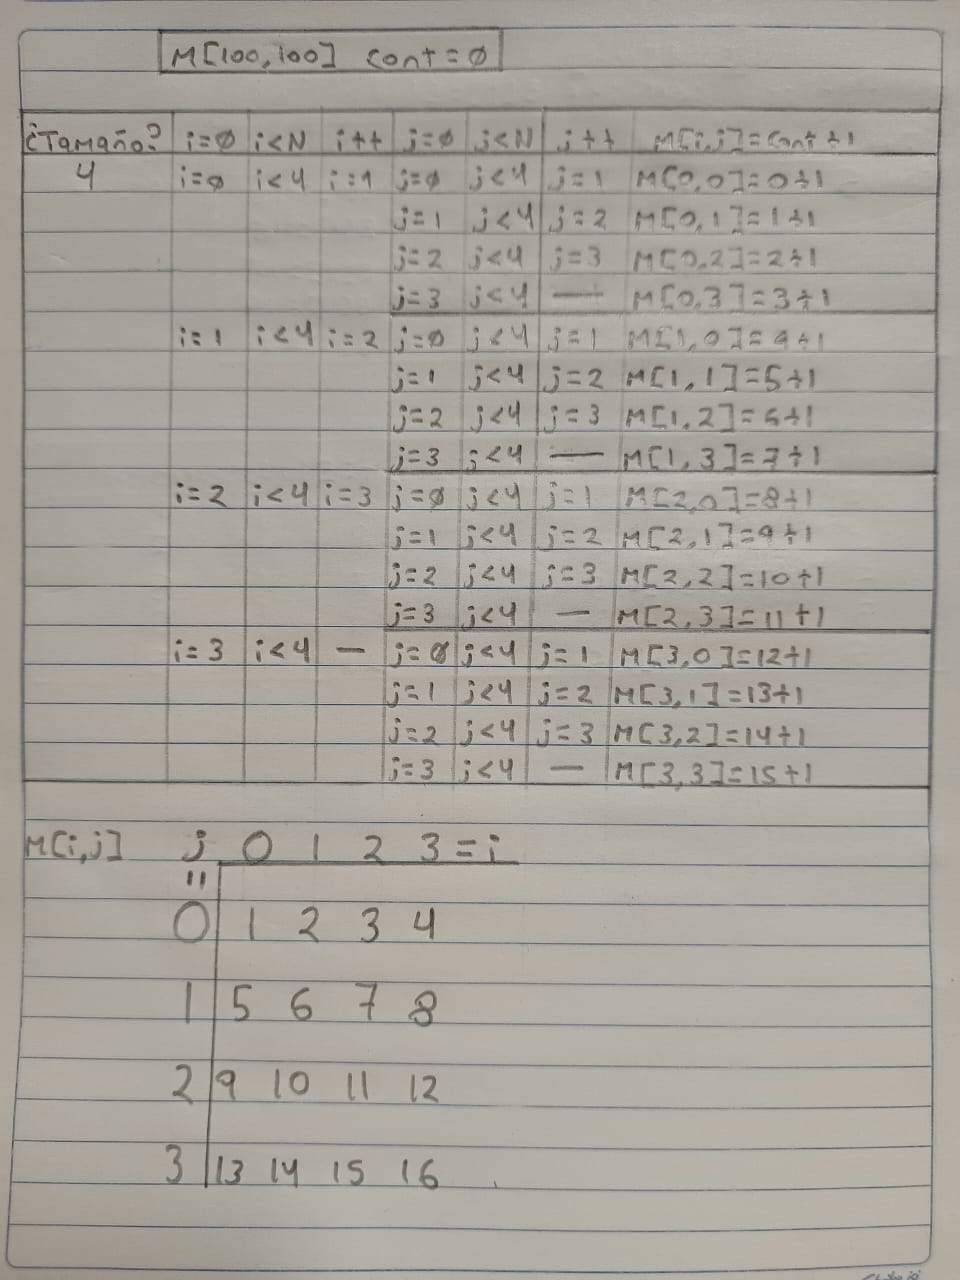 M[100,100] cont=0
¿Tamaño? i=0 i<N i++ j=0 j<N j++ M[i,j]=cont+1
4 i=0 i<4 i=1 j=0 j<4 j=1 M[0,0]=0+1
j=1 j<4 j=2 M[0,1]=1+1
j=2 j<4 j=3 M[0,2]=2+1
j=3 j<4 — M[0,3]=3+1
i=1 i<4 i=2 j=0 j<4 j=1 M[1,0]=4+1
j=1 j<4 j=2 M[1,1]=5+1
j=2 j<4 j=3 M[1,2]=6+1
j=3 j<4 — M[1,3]=7+1
i=2 i<4 i=3 j=0 j<4 j=1 M[2,0]=8+1
j=1 j<4 j=2 M[2,1]=9+1
j=2 j<4 j=3 M[2,2]=10+1
j=3 j<4 — M[2,3]=11+1
i=3 i<4 — j=0 j<4 j=1 M[3,0]=12+1
j=1 j<4 j=2 M[3,1]=13+1
j=2 j<4 j=3 M[3,2]=14+1
j=3 j<4 — M[3,3]=15+1
M[i,j] j 0 1 2 3=i
=
0 1 2 3 4
1 5 6 7 8
2 9 10 11 12
3 13 14 15 16